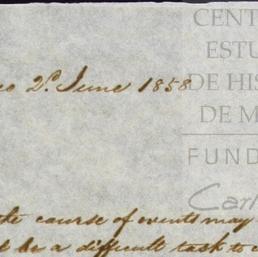 CENT
ESTU
DE HIS
DE M
FUND
Carl
2º June 1858
the course of events may
be a difficult task to